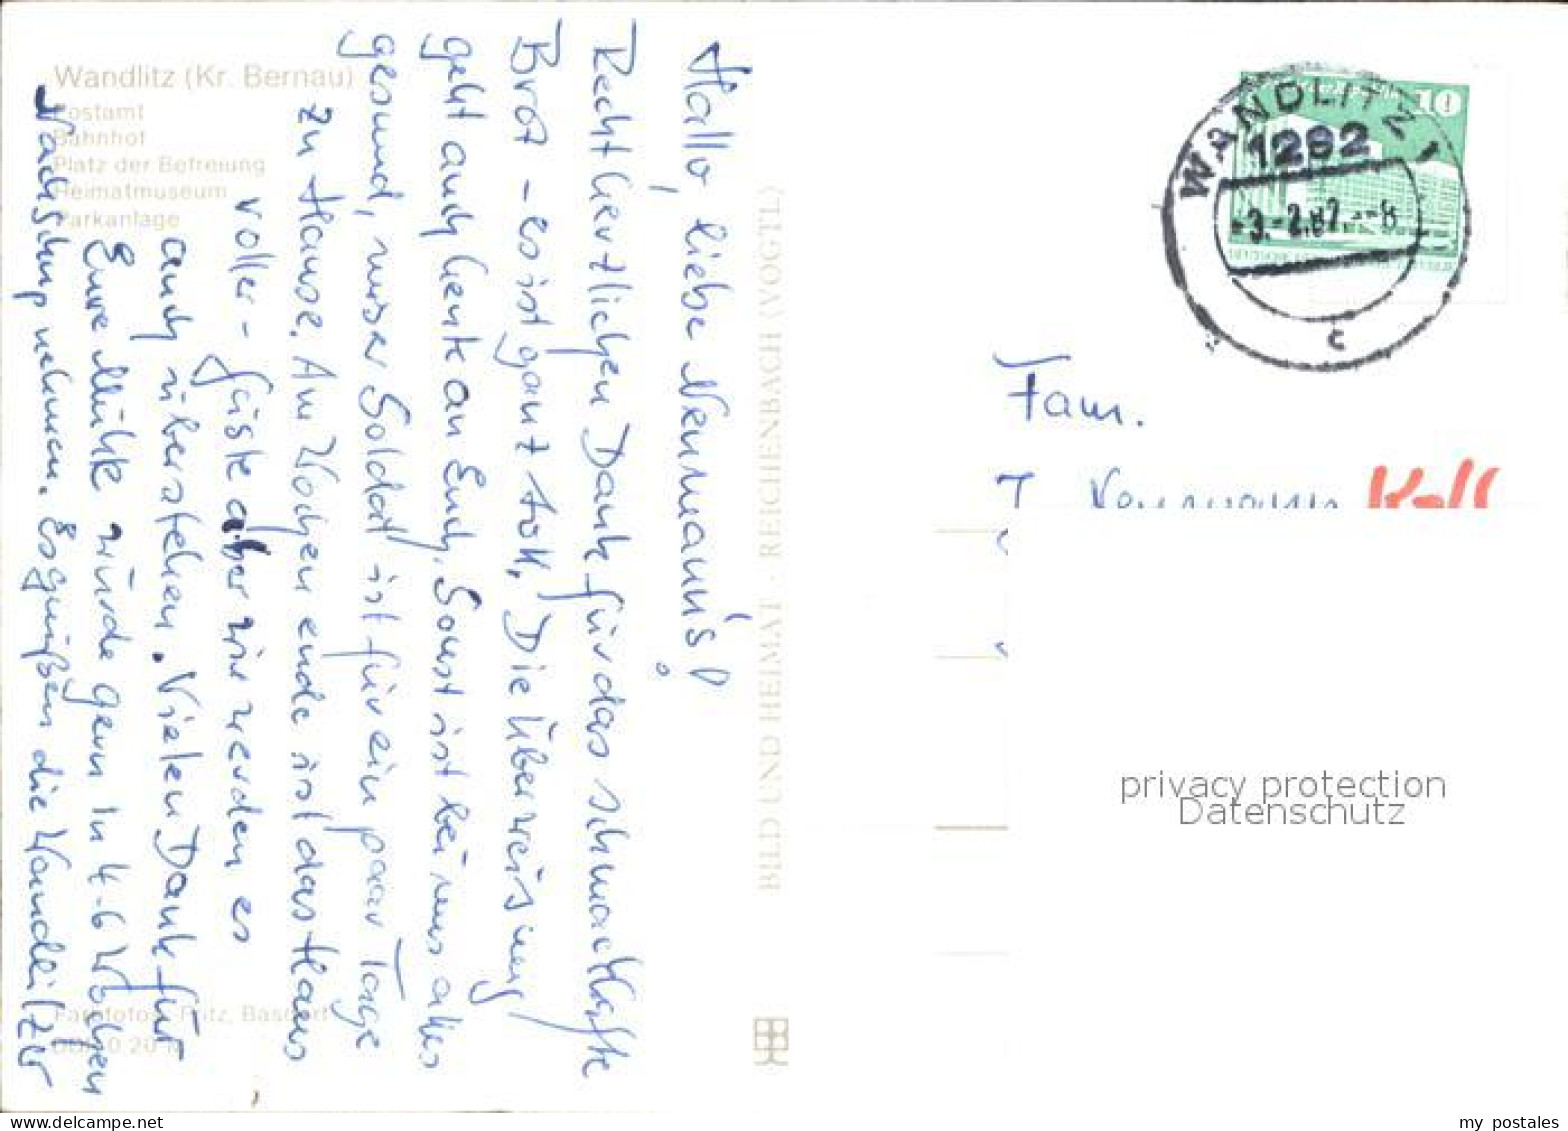 Wandlitz (Kr. Bernau)
Postamt
Bahnhof
Platz der Befreiung
Heimatmuseum
Parkanlage
Hallo, liebe Neumann's!
Recht herzlichen Dank für das schmackhafte
Brot - es ist ganz toll. Die Überweisung
geht auch heute an Euch. Sonst ist bei uns alles
gesund, unser Soldat ist für ein paar Tage
zu Hause. Am Wochenende ist das Haus
voller Gäste aber wir werden es
auch überstehen. Vielen Dank für
Eure Mühe würde gern in 4-6 Wochen
Nachschup nehmen. Es grüßen die Wandlitzer
Farbfotos: Fritz, Basdorf
0,20 M
BILD UND HEIMAT · REICHENBACH (VOGTL)
WANDLITZ 1
1292
-3.-2.87.--8
c
10
Fam.
Neumann
privacy protection
Datenschutz
www.delcampe.net
my_postales